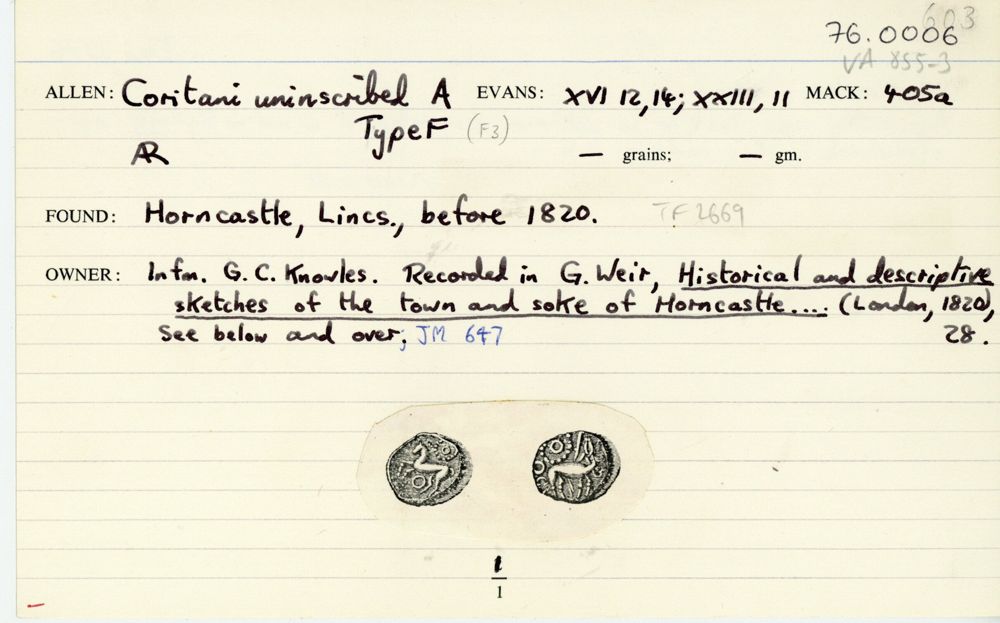 603
76.0006
VA 855-3
ALLEN: Coritani uninscribed A EVANS: XVI 12, 14; XXIII, 11 MACK: 405a
Type F (F3)
AR — grains; — gm.
FOUND: Horncastle, Lincs., before 1820. TF 2669
OWNER: Infm. G. C. Knowles. Recorded in G. Weir, Historical and descriptive
sketches of the town and soke of Horncastle.... (London, 1820),
See below and over; JM 647 28.
1
1